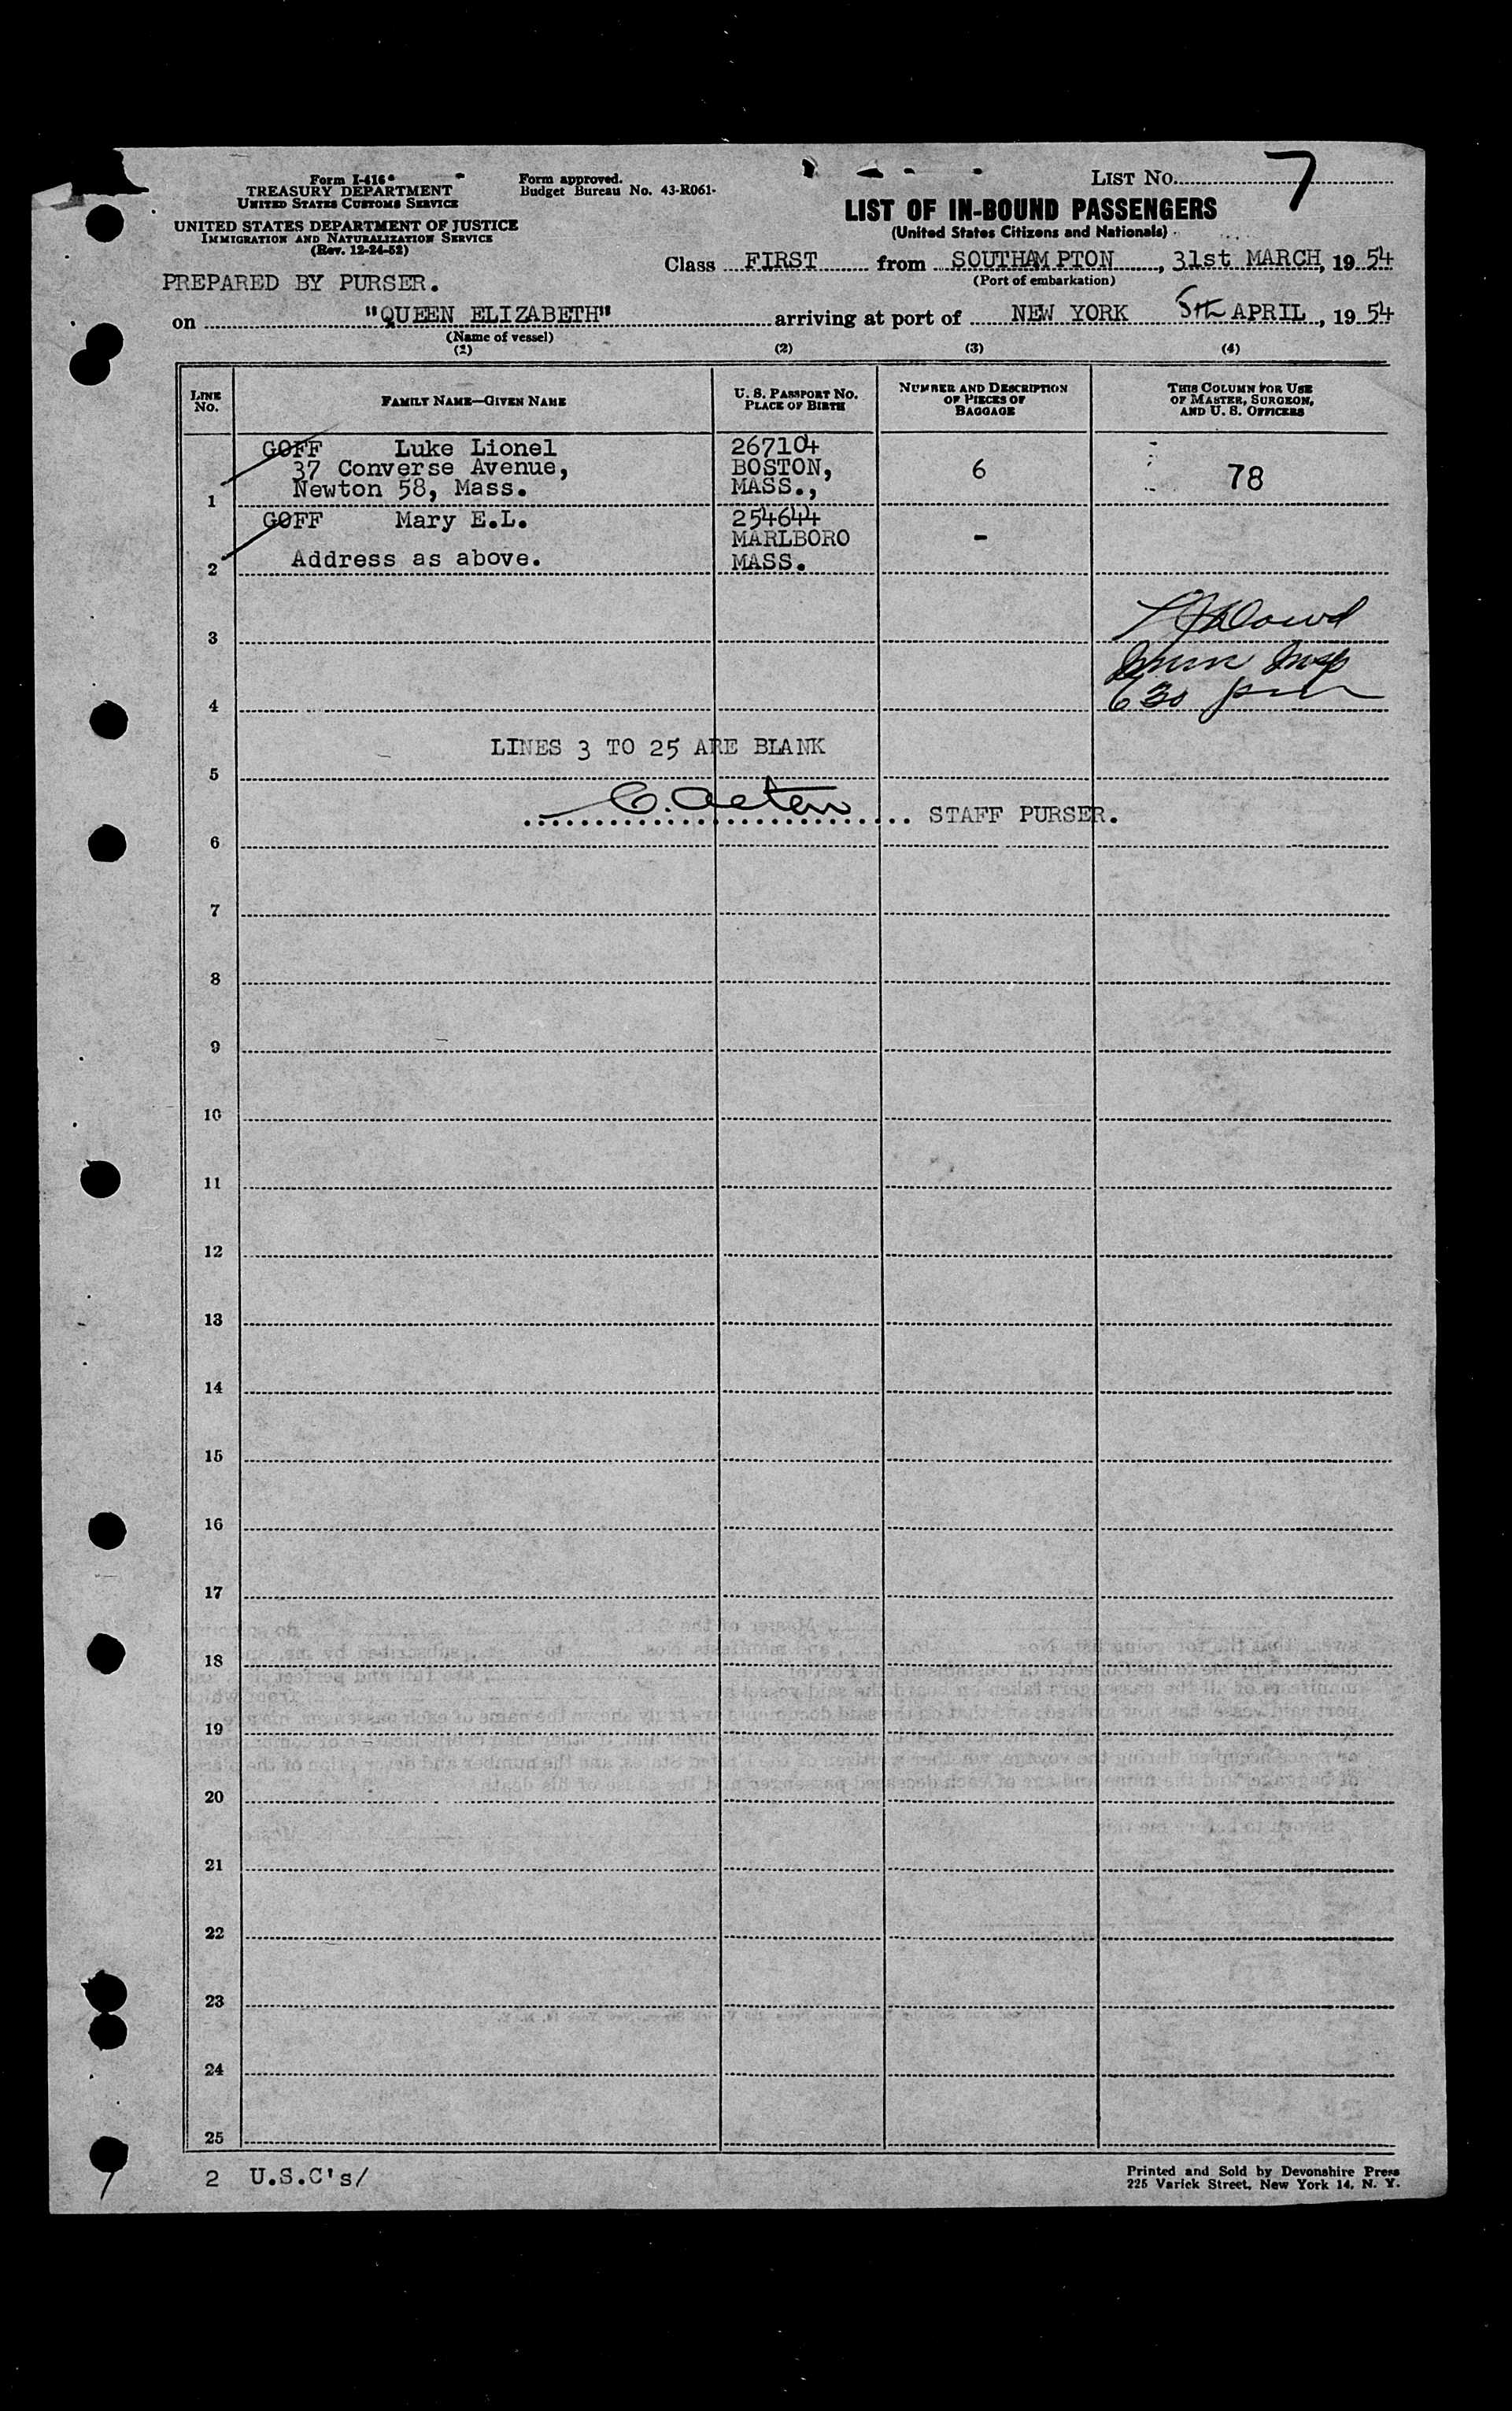 Form I-416
TREASURY DEPARTMENT
UNITED STATES CUSTOMS SERVICE
UNITED STATES DEPARTMENT OF JUSTICE
IMMIGRATION AND NATURALIZATION SERVICE
(Rev. 12-24-52)
Form approved.
Budget Bureau No. 43-R061.
LIST NO. 7
LIST OF IN-BOUND PASSENGERS
(United States Citizens and Nationals)
Class FIRST from SOUTHAMPTON, 31st MARCH, 1954
(Port of embarkation)
PREPARED BY PURSER.
on "QUEEN ELIZABETH" arriving at port of NEW YORK 5th APRIL, 1954
(Name of vessel)
(1) (2) (3) (4)
LINE NO.
FAMILY NAME—GIVEN NAME
U. S. PASSPORT NO.
PLACE OF BIRTH
NUMBER AND DESCRIPTION
OF PIECES OF
BAGGAGE
THIS COLUMN FOR USE
OF MASTER, SURGEON,
AND U. S. OFFICERS
GOFF Luke Lionel 267104
37 Converse Avenue, BOSTON, 6 78
1 Newton 58, Mass. MASS.,
GOFF Mary E.L. 254644
MARLBORO -
2 Address as above. MASS.
3
4 6 30 pm
LINES 3 TO 25 ARE BLANK
5
STAFF PURSER.
6
7
8
9
10
11
12
13
14
15
16
17
18
19
20
21
22
23
24
25
2 U.S.C's/
Printed and Sold by Devonshire Press
225 Varick Street, New York 14, N. Y.